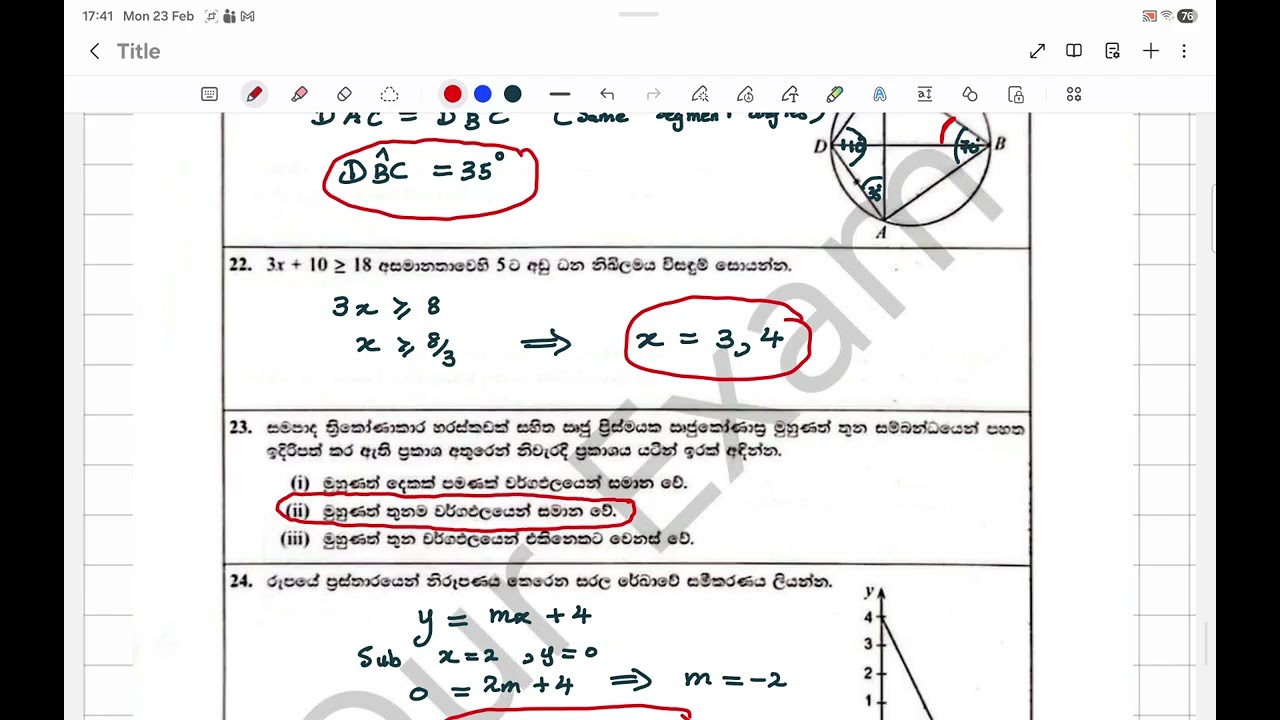 17:41 Mon 23 Feb
76
Title
DÂC = DB̂C (Same segment angles)
DB̂C = 35°
D
B
A
110°
70°
35°
22. 3x + 10 ≥ 18 අසමානතාවෙහි 5ට අඩු ධන නිඛිලමය විසඳුම් සොයන්න.
3x ≥ 8
x ≥ 8/3 ⟹ x = 3, 4
23. සමපාද ත්‍රිකෝණාකාර හරස්කඩක් සහිත සෘජු ප්‍රිස්මයක සෘජුකෝණාස්‍ර මුහුණත් තුන සම්බන්ධයෙන් පහත
ඉදිරිපත් කර ඇති ප්‍රකාශ අතුරෙන් නිවැරදි ප්‍රකාශය යටින් ඉරක් අඳින්න.
(i) මුහුණත් දෙකක් පමණක් වර්ගඵලයෙන් සමාන වේ.
(ii) මුහුණත් තුනම වර්ගඵලයෙන් සමාන වේ.
(iii) මුහුණත් තුන වර්ගඵලයෙන් එකිනෙකට වෙනස් වේ.
24. රූපයේ ප්‍රස්තාරයෙන් නිරූපණය කෙරෙන සරල රේඛාවේ සමීකරණය ලියන්න.
y = mx + 4
Sub x = 2, y = 0
0 = 2m + 4 ⟹ m = -2
y
4
3
2
1
our Exam